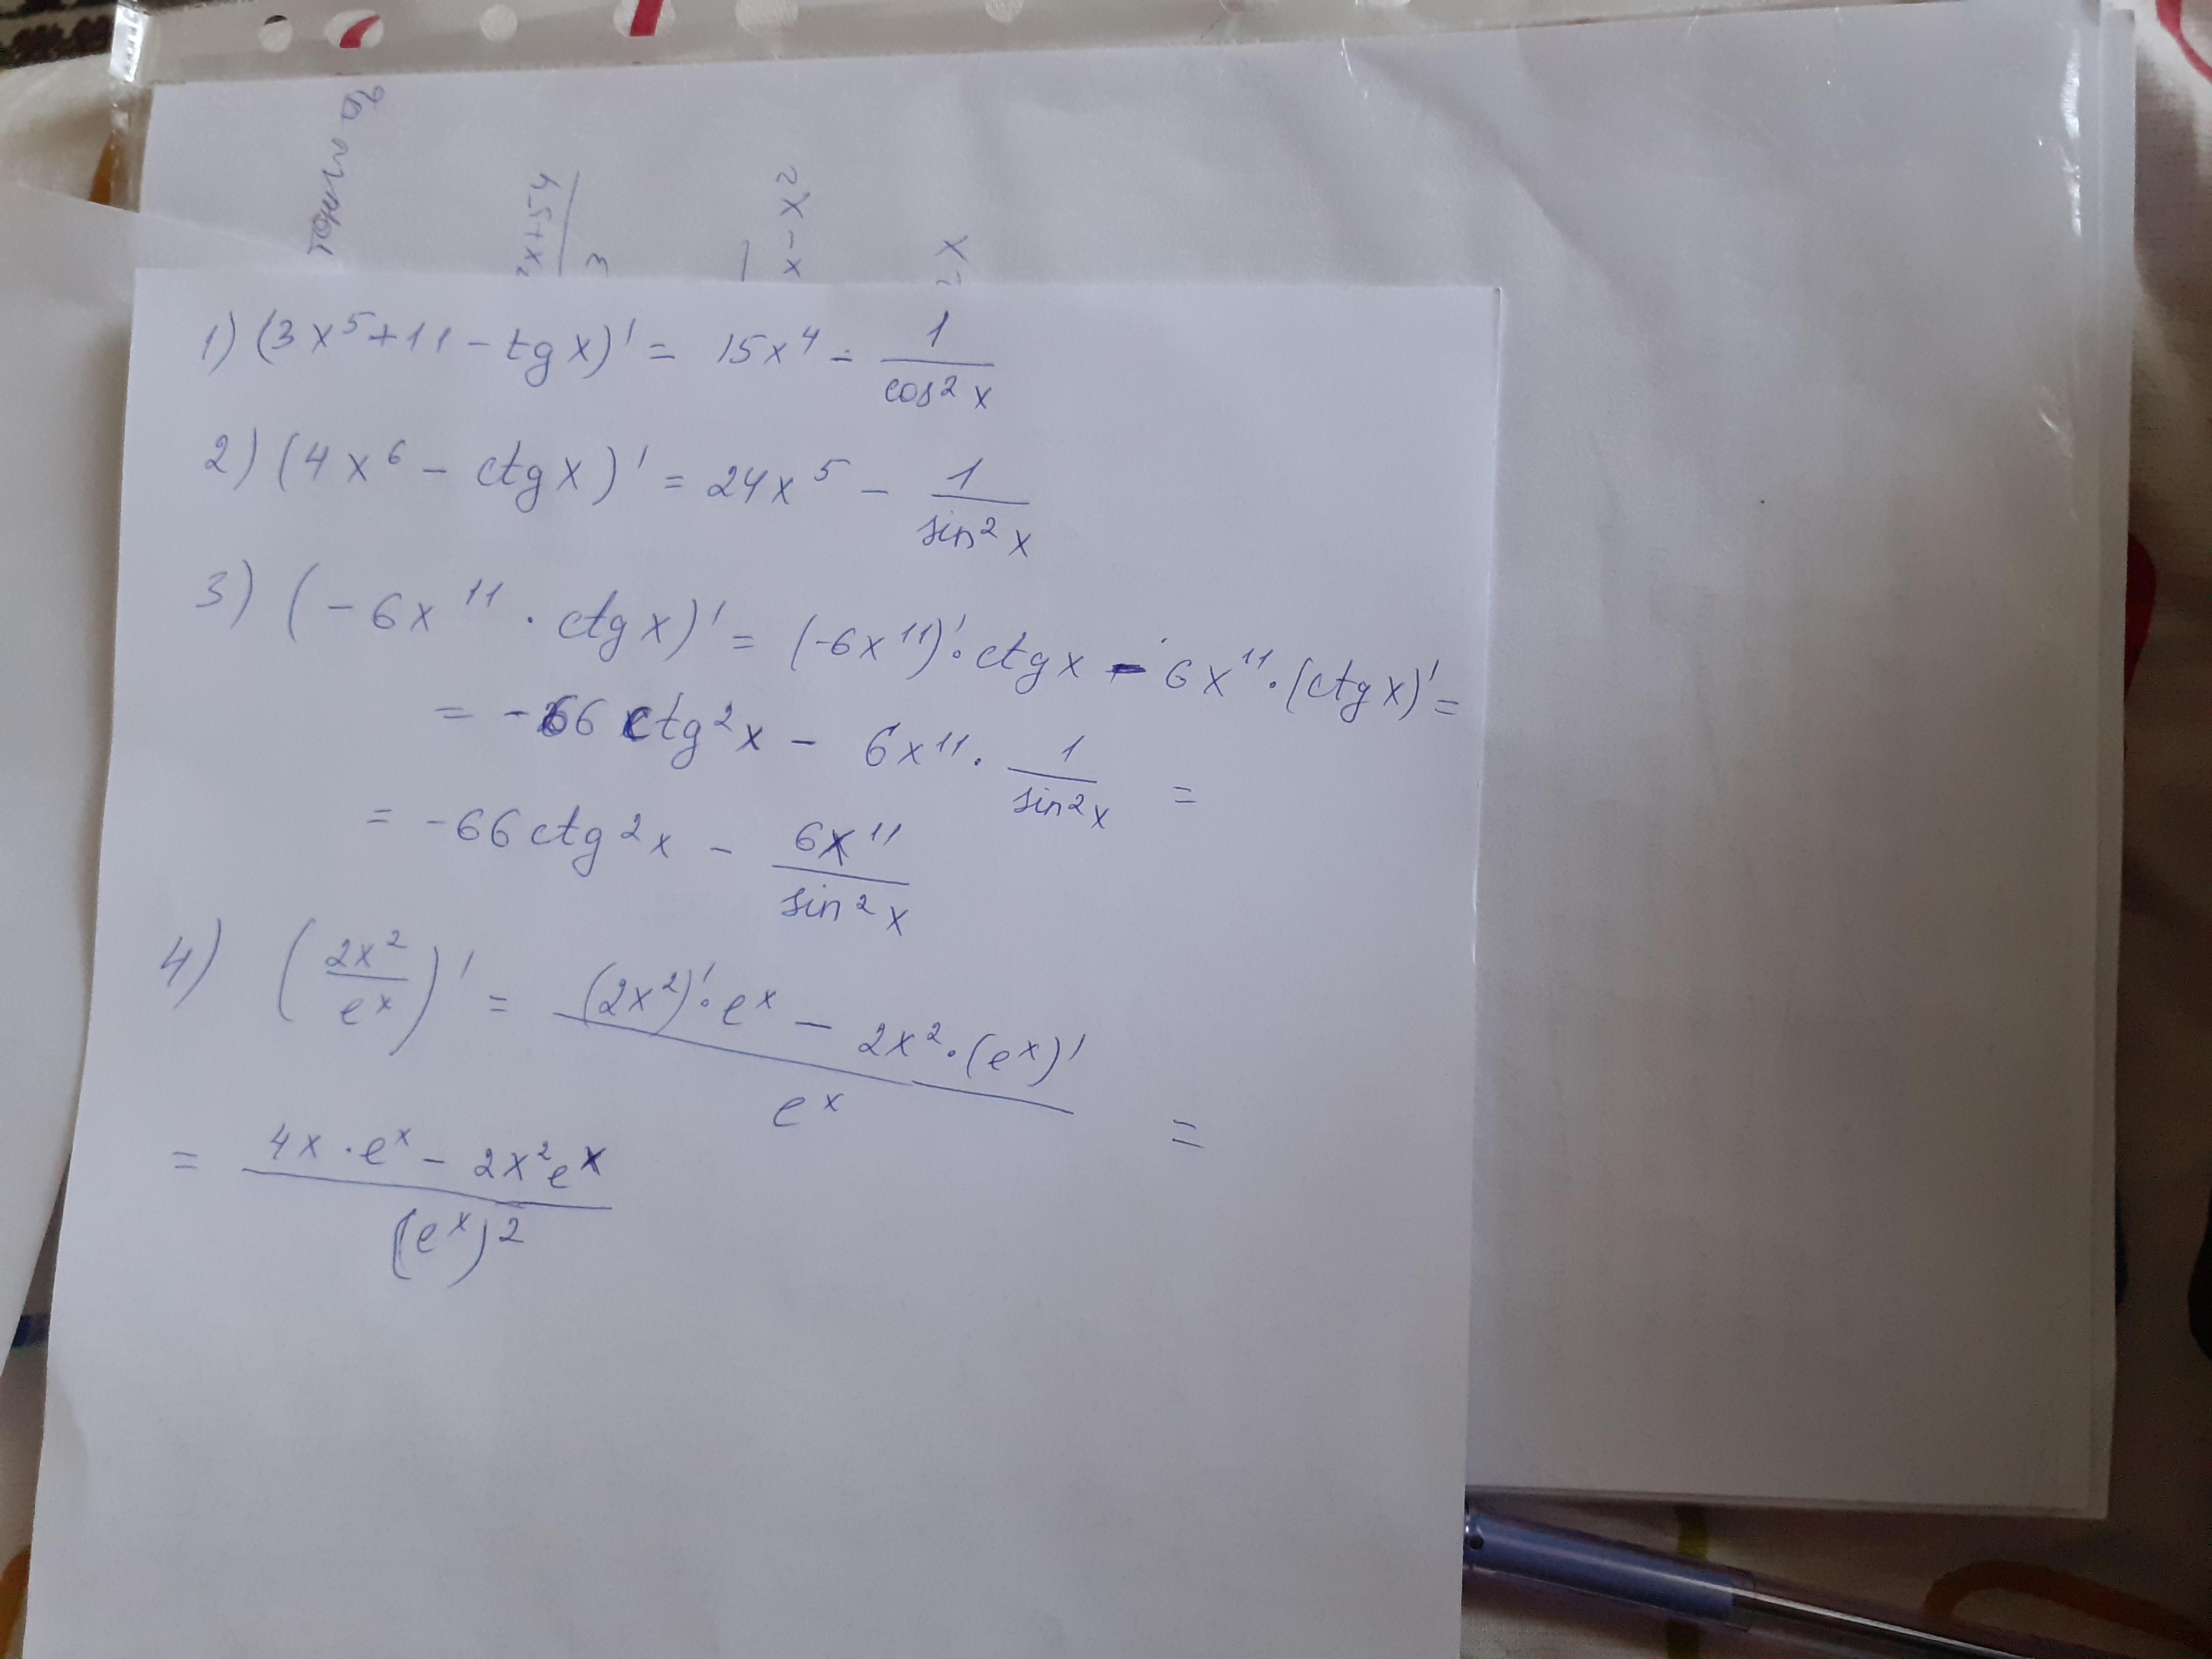 точно да
2x+54
3
x-x²
x
1) (3x⁵+11-tgx)' = 15x⁴ - 1/cos²x
2) (4x⁶ - ctgx)' = 24x⁵ - 1/sin²x
3) (-6x¹¹ · ctgx)' = (-6x¹¹)' · ctgx - 6x¹¹ · (ctgx)' =
= -66 ctg²x - 6x¹¹ · 1/sin²x =
= -66ctg²x - 6x¹¹/sin²x
4) (2x²/eˣ)' = ((2x²)' · eˣ - 2x² · (eˣ)')/eˣ =
= (4x · eˣ - 2x²eˣ)/(eˣ)²